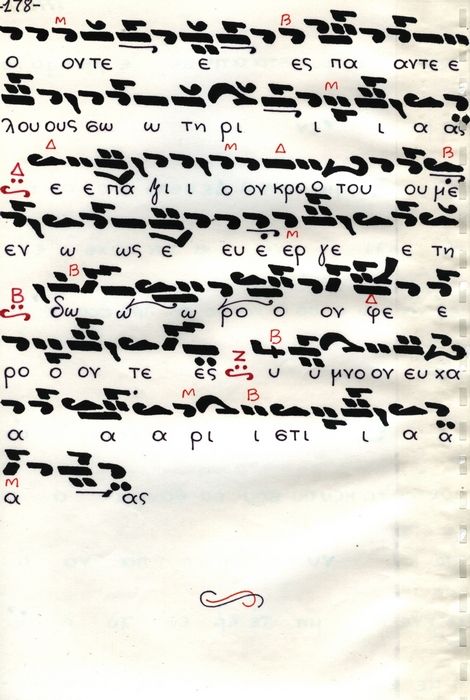 -178-
Μ Β
ο οντε ε ες πα αντε ε
Μ
λου ους σω ω τη ρι ι ι α ας
Δ Μ Δ Β
Δ ε ε πα γι ι ο ου κρο ο του ου με
Μ
εν ω ως ε ευ ε ερ γε ε τη
Β Δ
Β δω ω ω ρο ο ον φε ε
Β
ρο ο ον τε ες Ν υ υ μνο ον ευ χα
Μ Β
α α α ρι ι στι ι α α
Μ
α ας